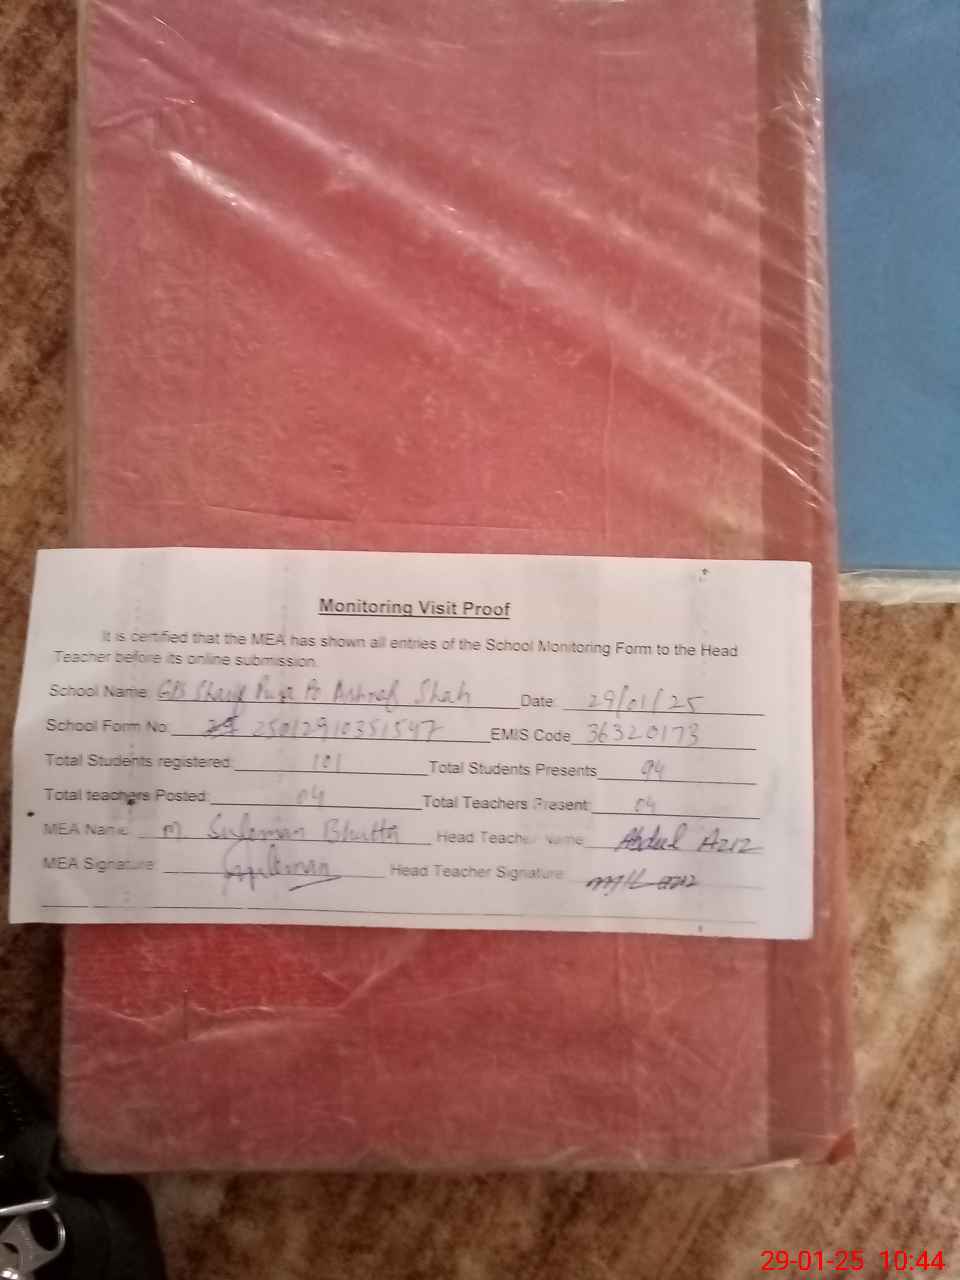 Monitoring Visit Proof
It is certified that the MEA has shown all entries of the School Monitoring Form to the Head
Teacher before its online submission.
School Name: GPS Sharif Ashraf Shah Date: 29/01/25
School Form No: 25012910351547 EMIS Code 36320173
Total Students registered: 101 Total Students Presents 94
Total teachers Posted: 04 Total Teachers Present: 04
MEA Name: M. Suleman Bhutta Head Teacher Name: Abdul Aziz
MEA Signature: Suleman Head Teacher Signature:
29-01-25 10:44